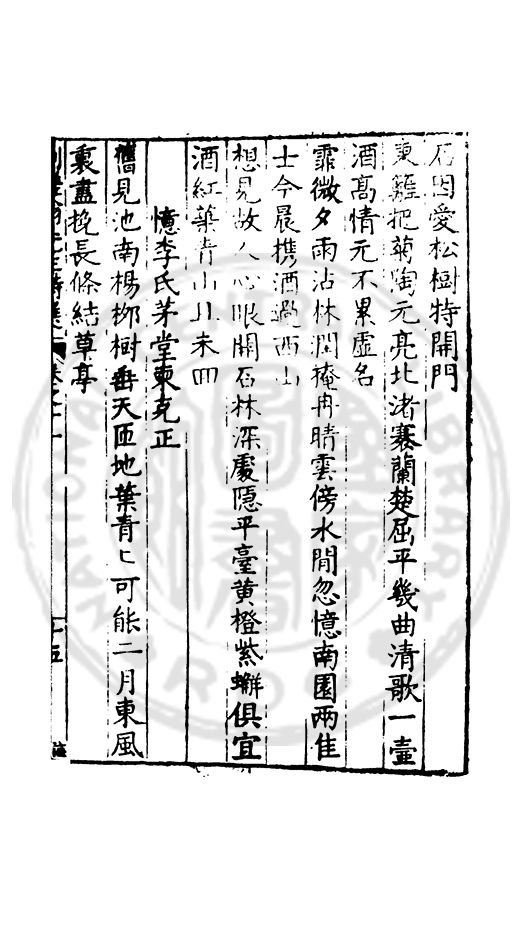 石因愛松樹特開門
東籬把菊陶元亮北渚搴蘭楚屈平幾曲清歌一壷
酒高情元不累虛名
霏微夕雨沾林潤掩冉晴雲傍水閒忽憶南園兩佳
士今晨携酒過西山
想見故人心眼開石林深處隱平臺黄橙紫蠏俱宜
酒紅葉青山
憶李氏茅堂柬克正
舊見池南楊柳樹垂天匝地葉青〻可能二月東風
裏盡挽長條結草亭
卷之十
十五